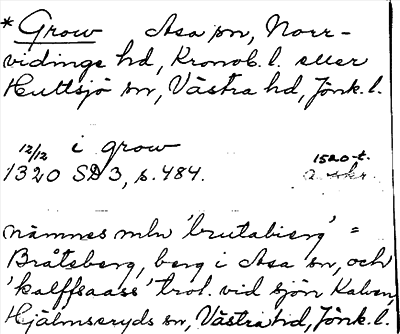 * Grow Asa sn, Norr-
vidinge hd, Kronob. l. eller
Hultsjö sn, Västra hd, Jönk. l.
12/12 i grow 1520-t.
1320 SD 3, s. 484. a. skr.
nämnes mln 'brutabierg' =
Bråtsberg, berg i Asa sn, och
'kalffsaass' trol. vid sjön Kalven,
Hjälmseryds sn, Västra hd, Jönk. l.